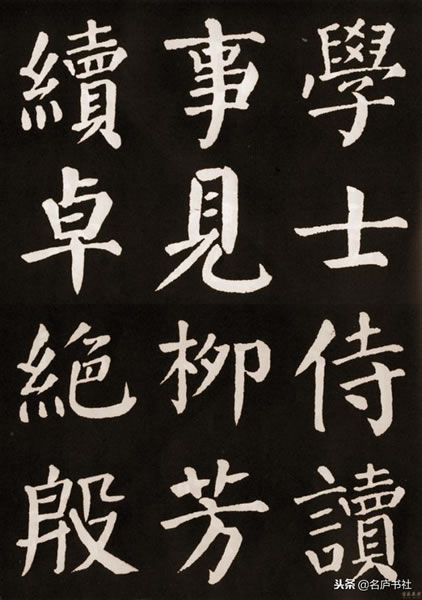 學士侍讀
事見柳芳
續卓絕殷
头条 @名庐书社